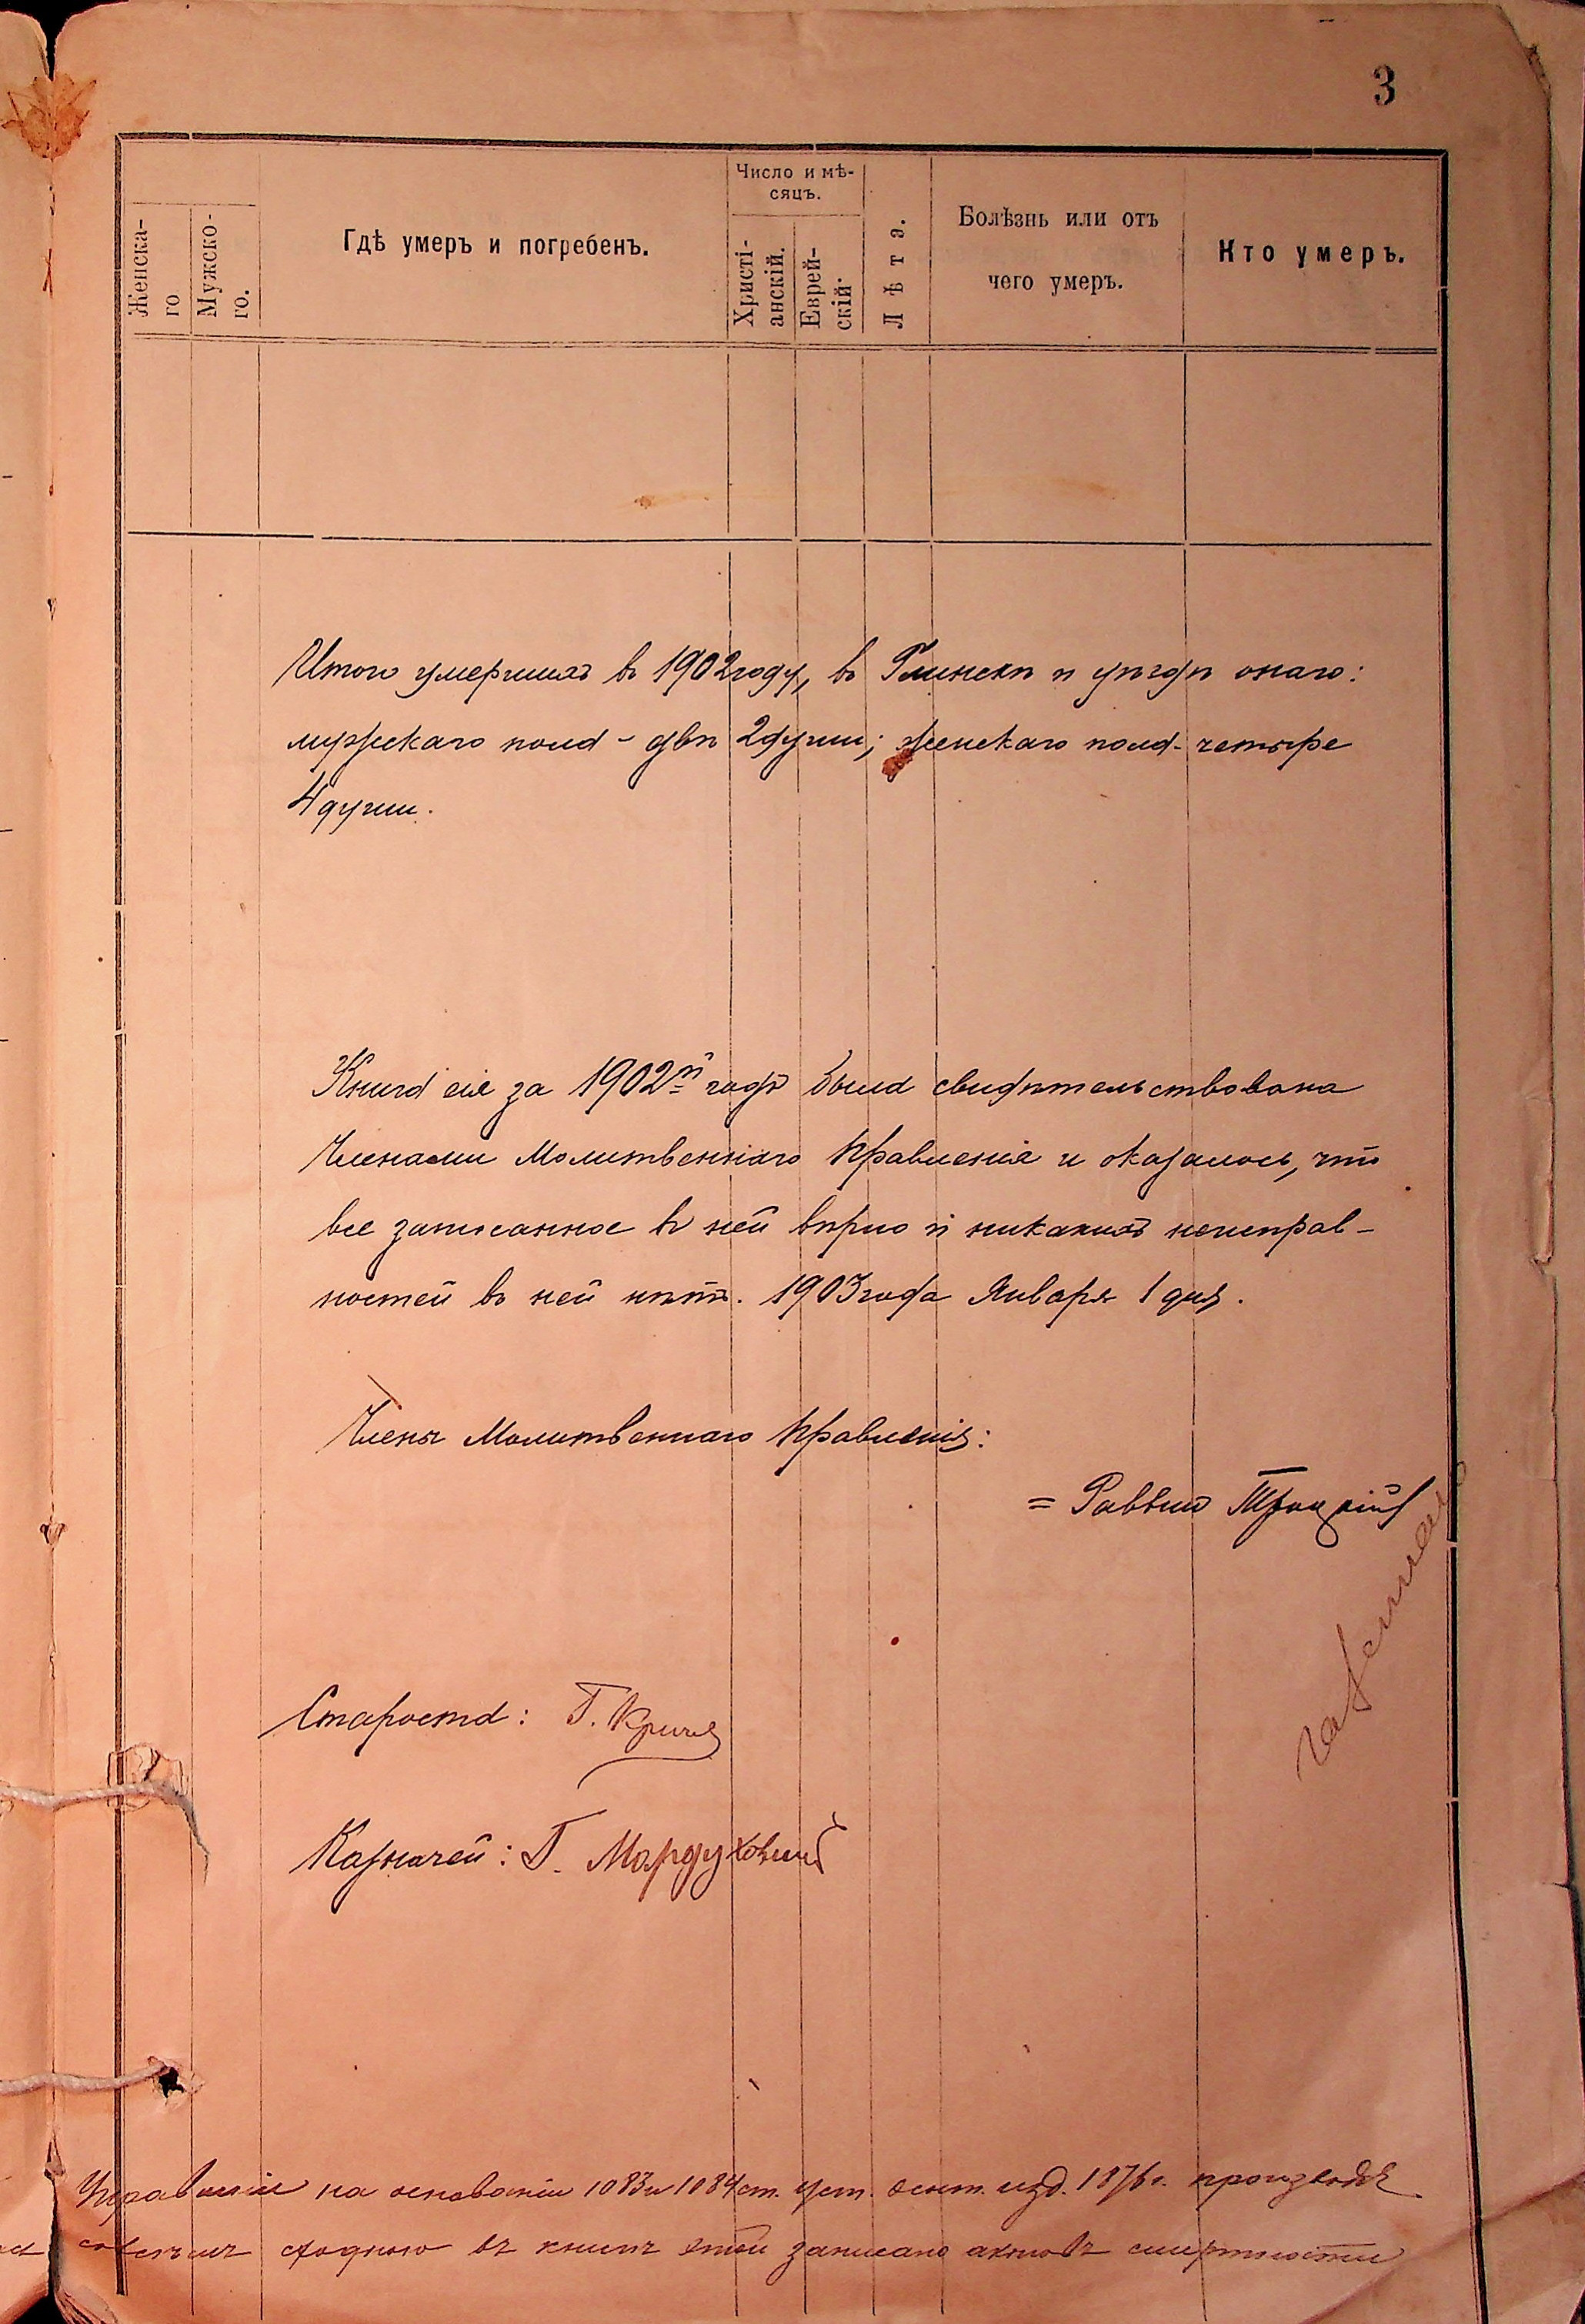 3
Женска-
го
Мужско-
го.
Гдѣ умеръ и погребенъ.
Число и мѣ-
сяцъ.
Христі-
анскій.
Еврей-
скій.
Лѣта.
Болѣзнь или отъ
чего умеръ.
Кто умеръ.
Итого умершихъ въ 1902 году, въ Глинскѣ и уѣздѣ онаго:
мужскаго пола - двѣ 2 души; женскаго пола - четыре
4 души.
Книга сія за 1902й годъ была свидѣтельствована
Членами Молитвеннаго Правленія и оказалось, что
все записанное въ ней вѣрно и никакихъ неисправ-
ностей въ ней нѣтъ. 1903 года Января 1 дня.
Члены Молитвеннаго Правленія:
= Раввинъ Троцкій
Староста: Г.
Казначей: Г. Мордуховичъ
на основаніи 1083 и 1084 ст. Уст. изд. 1876 г.
въ книгѣ этой записано актовъ смертности